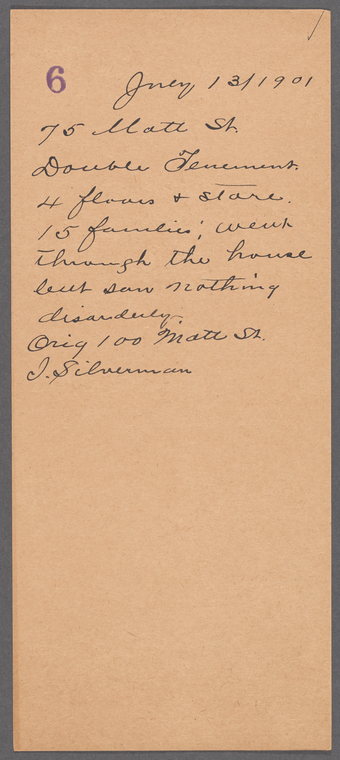 6
July 13/1901
75 Mott St.
Double Tenement.
4 floors & store.
15 families; went
through the house
but saw nothing
disorderly.
Orig 100 Mott St.
I. Silverman